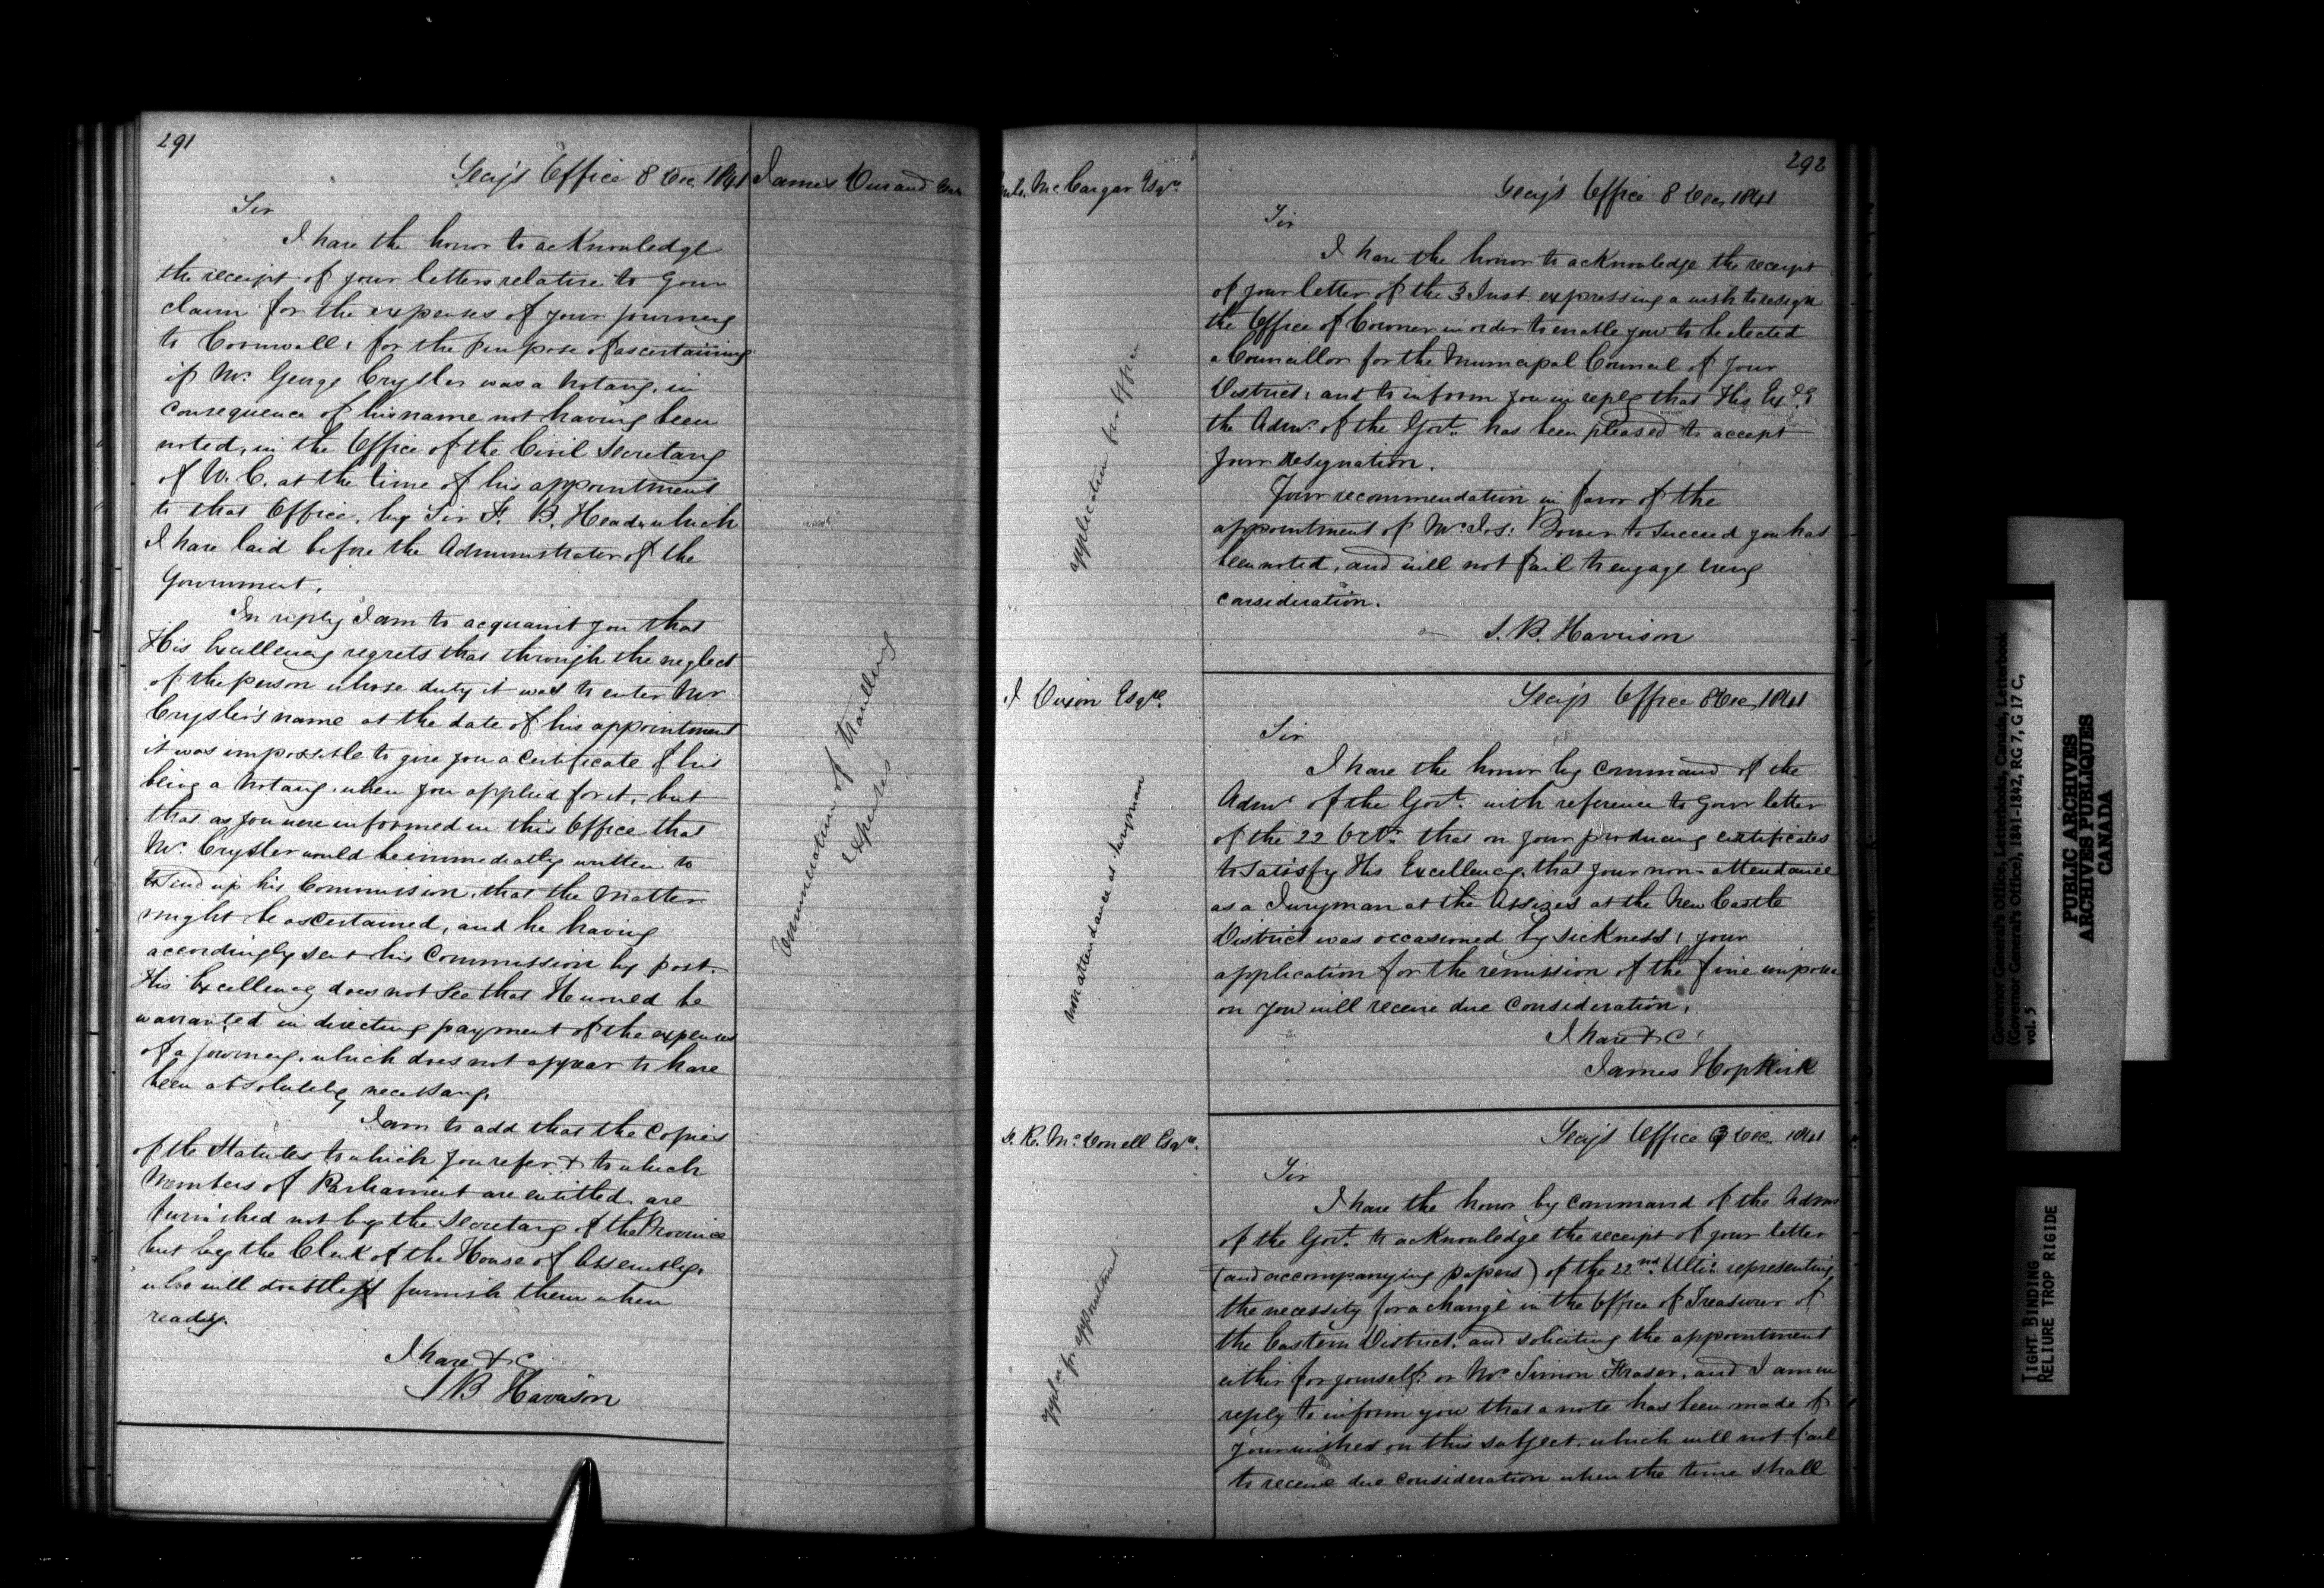 291
Secy's Office 8 Dec. 1841
James Durand Esqr
Sir
I have the honor to acknowledge
the receipt of your letters relative to your
claim for the expenses of your journey
to Cornwall, for the purpose of ascertaining
if Mr. George Crysler was a Notary, in
consequence of his name not having been
noted, in the Office of the Civil Secretary
of U. C. at the time of his appointment
to that Office, by Sir F. B. Head, which
I have laid before the Administrator of the
Government.
In reply I am to acquaint you that
His Excellency regrets that through the neglect
of the person whose duty it was to enter Mr
Crysler's name at the date of his appointment
it was impossible to give you a Certificate of his
being a Notary, when you applied for it, but
that as you were informed in this Office that
Mr. Crysler would be immediatly written to
to send up his Commission, that the Matter
might be ascertained, and he having
accordingly sent his Commission by post.
His Excellency does not see that He would be
warranted in directing payment of the expenses
of a journey, which does not appear to have
been absolutely necessary.
I am to add that the Copies
of the Statutes to which you refer & to which
Members of Parliament are entitled, are
furnished not by the Secretary of the Province
but by the Clerk of the House of Assembly,
who will doubtless furnish them when
ready.
I have &c
S B Harrison
Enumeration of travelling
expenses
292
McCargar Esqre.
application for Office
Secy's Office 8 Dec. 1841
Sir
I have the honor to acknowledge the receipt
of your letter of the 3 Inst. expressing a wish to resign
the Office of Coroner in order to enable you to be elected
a Councillor for the Municipal Council of your
District, and to inform you in reply that His Exy.
the Admr. of the Govt. has been pleased to accept
your resignation.
Your recommendation in favor of the
appointment of Mr. Jos: Bower to succeed you has
been noted, and will not fail to engage every
consideration.
S. B. Harrison
J Dixon Esqre.
non attendance as Juryman
Secy's Office 8 Dec. 1841
Sir
I have the honor by Command of the
Admr of the Govt. with reference to your letter
of the 22 Octr. that on your producing certificates
to satisfy His Excellency, that your non-attendance
as a Juryman at the Assizes at the New Castle
District was occasioned by sickness, your
application for the remission of the fine impose
on you will receive due consideration.
I have &c
James Hopkirk
McDonell Esqre.
appln for appointment
Secy's Office 3 Dec. 1841
Sir
I have the honor by command of the Admr
of the Govt. to acknowledge the receipt of your letter
(and accompanying papers) of the 22nd. Ulto. representing
the necessity for a change in the Office of Treasurer of
the Eastern District, and soliciting the appointment
either for yourself or Mr. Simon Fraser, and I am in
reply to inform you that a note has been made of
your wishes on this subject, which will not fail
to receive due consideration when the time shall
Governor General's Office, Letterbooks, Canada, Letterbook
(Governor General's Office), 1841-1842, RG 7, G 17 C,
vol. 5
PUBLIC ARCHIVES
ARCHIVES PUBLIQUES
CANADA
TIGHT BINDING
RELIURE TROP RIGIDE